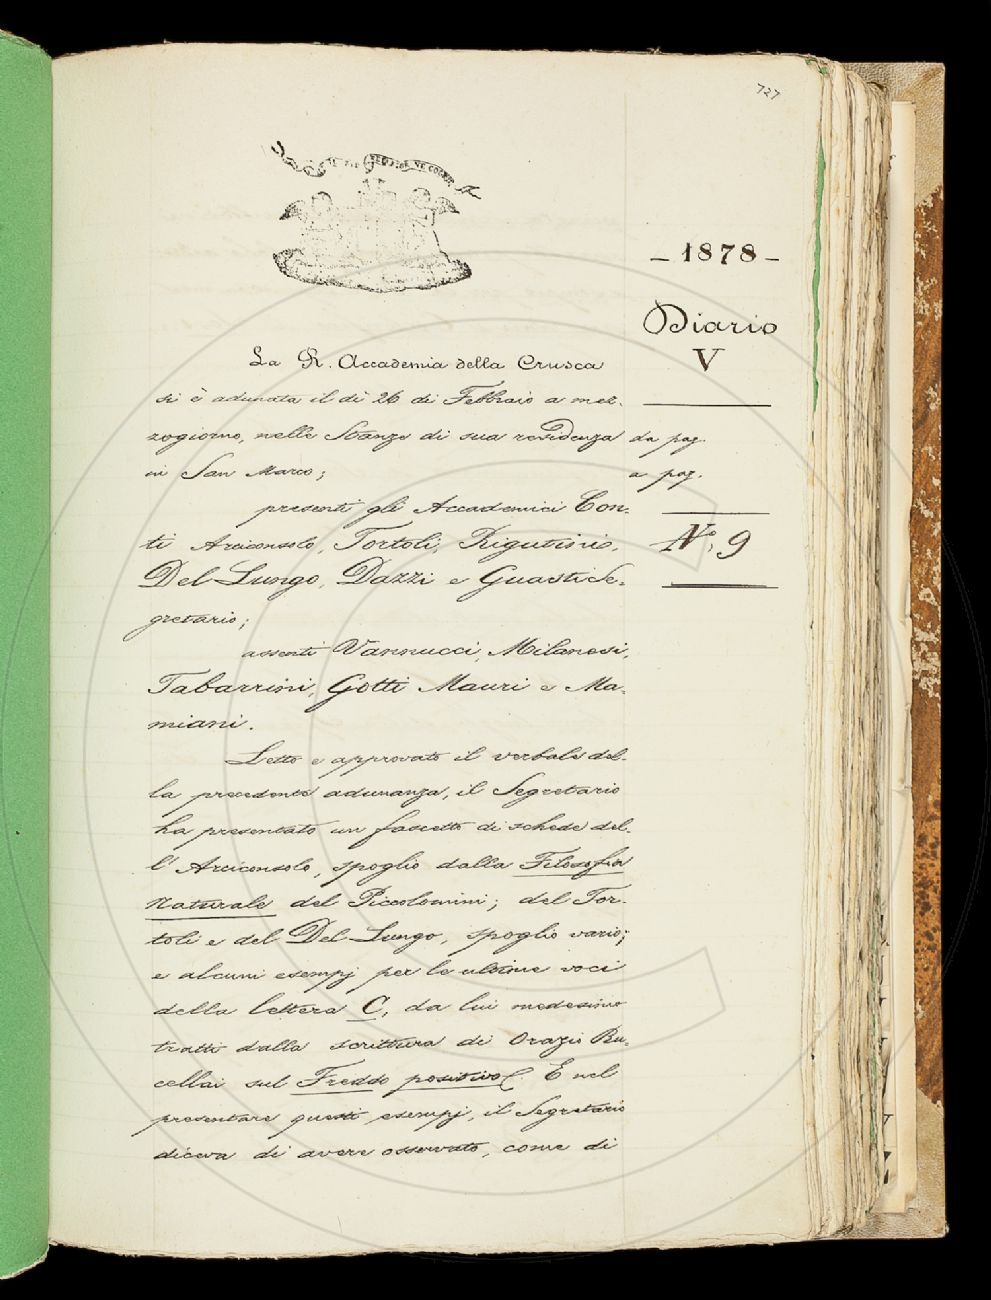 727
— 1878 —
Diario
V
da pag.
a pag.
N.º 9
La R. Accademia della Crusca
si è adunata il dì 26 di Febbraio a mez-
zogiorno, nelle Stanze di sua residenza
in San Marco;
presenti gli Accademici Con-
ti Arciconsolo, Tortoli, Rigutini,
Del Lungo, Dazzi e Guasti Se-
gretario;
assenti Vannucci, Milanesi,
Tabarrini, Gotti Mauri e Ma-
miani.
Letto e approvato il verbale del-
la precedente adunanza, il Segretario
ha presentato un fascetto di schede del-
l'Arciconsolo, spoglio dalla Filosofia
Naturale del Piccolomini; del Tor-
toli e del Del Lungo, spoglio vario;
e alcuni esempj per le ultime voci
della lettera C, da lui medesimo
tratti dalla scrittura di Orazio Ru-
cellai sul Freddo positivo. E nel
presentare questi esempj, il Segretario
diceva di avere osservato, come di